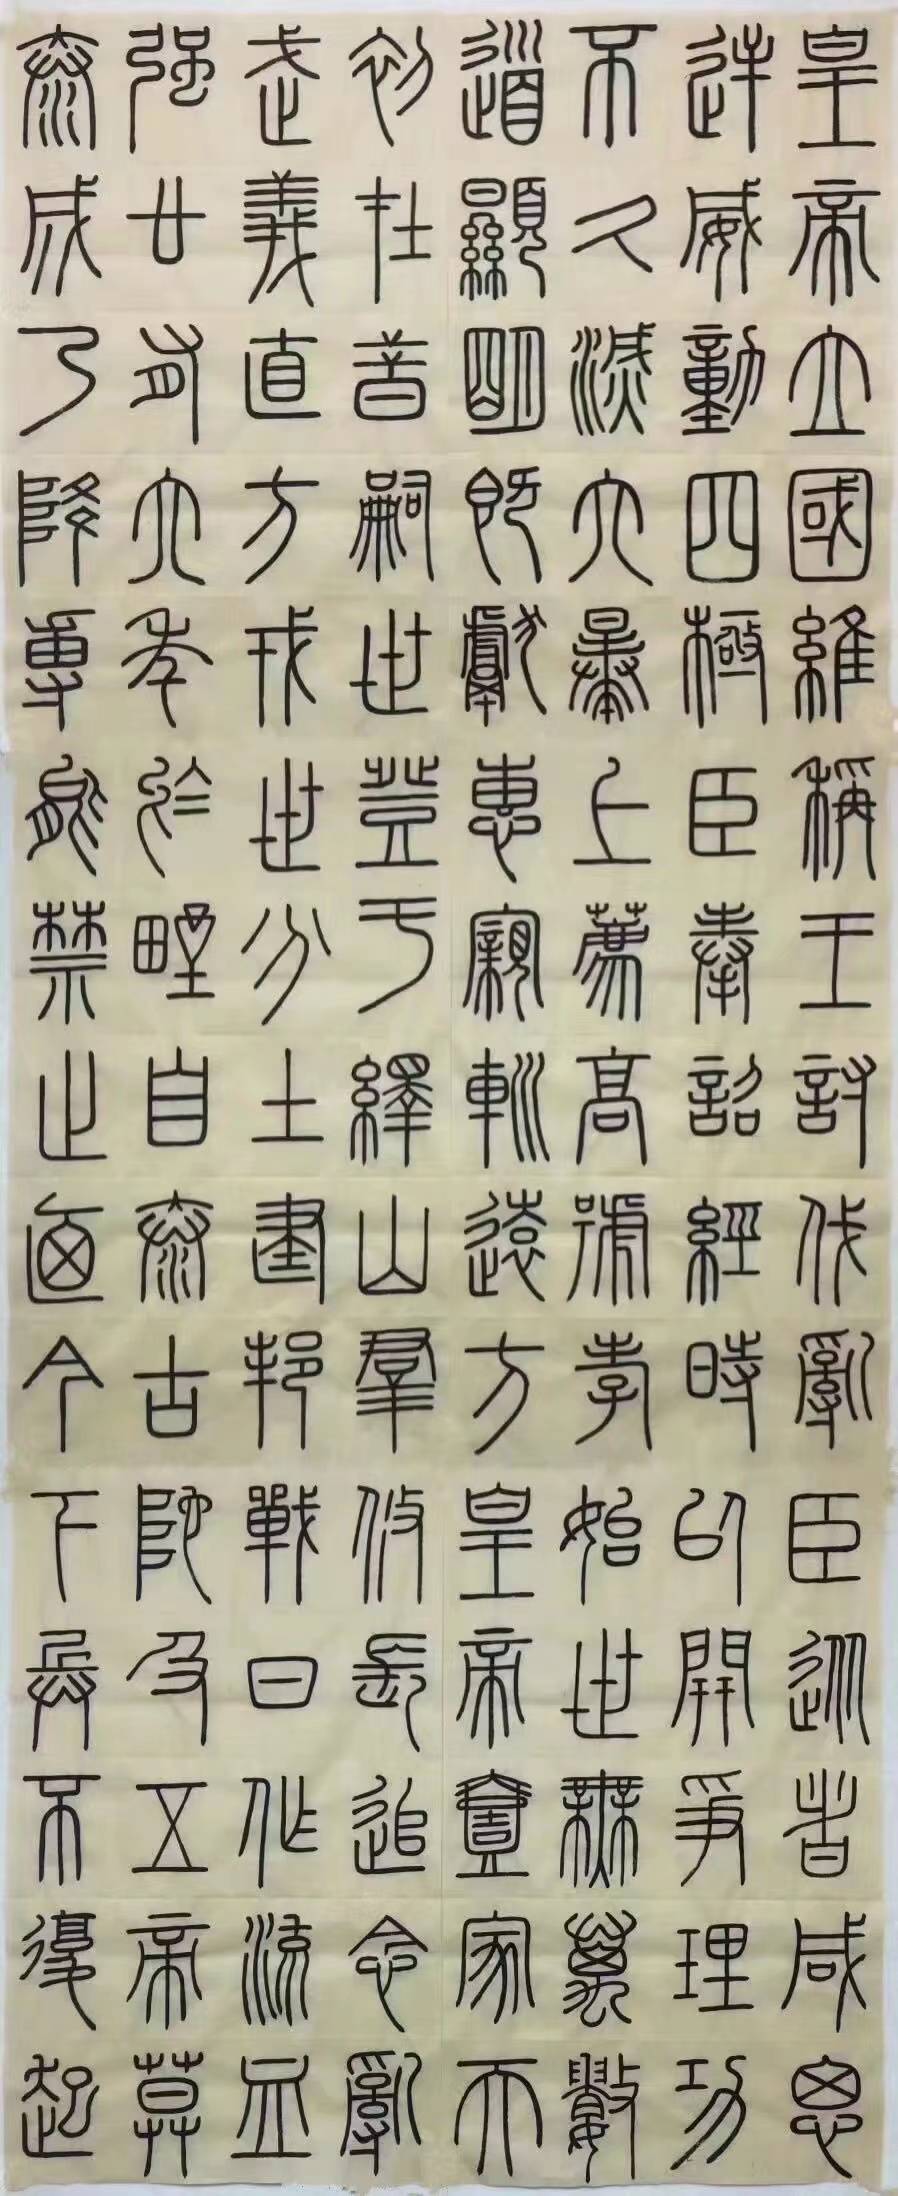 皇帝立國維稱王討伐亂臣從者咸思
逆威動四極臣奉詔經時以開爭理功
不久滅六暴上薦高號孝始世無萬數
道顯明既獻惠親巡遠方皇帝壹家天
初在昔嗣世登于繹山羣攸長追念亂
武義直方戎世分土建邦戰日作流血
強廿有六年於野自泰古陀及五帝莫
泰成乃降専能禁止廼今下兵不復起